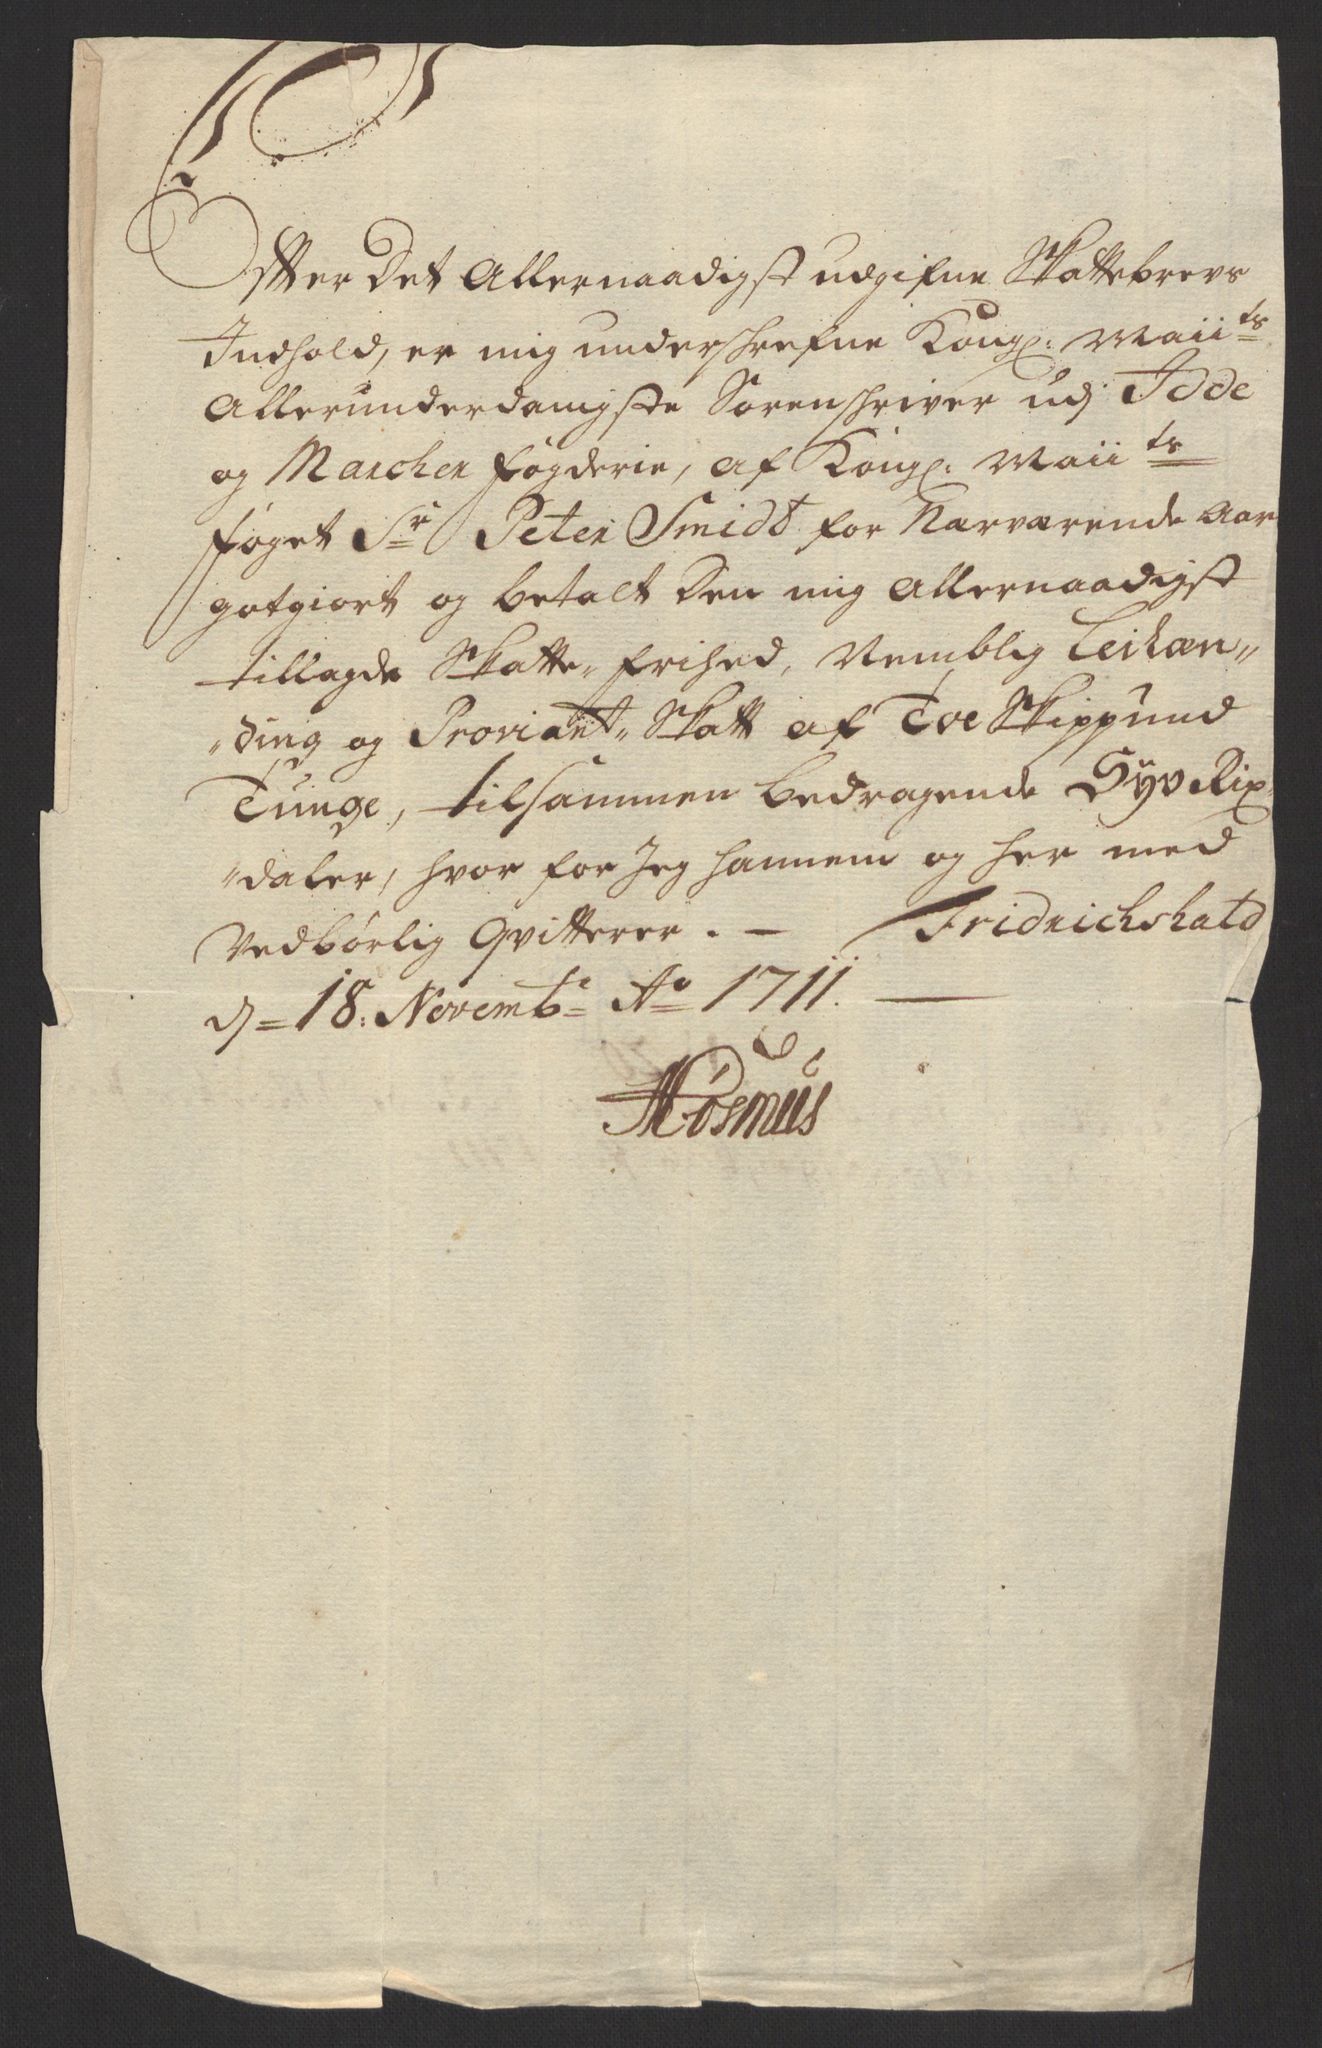 Effter Det Allernaadigst udgifne Skattebrevs
Indhold, er mig underschrefne Kongl: Maiits
Allerunderdanigste Sorenschriver udj Idde
og Marcher fögderie, af Kongl: Maiits
föget Sr Peter Smidt for Nærværende Aar
gotgiort og betalt Den mig Allernaadigst
tillagde Skatte-frihed, Nemblig Leilæn-
-ding og Proviant-Skatt af Toe Skippund
Tunge, tilsammen bedragende Syv Rix-
-daler, hvor for Jeg hannem og her med
Vedbörlig Qvitterer. — Fridrichshald
d= 18: Novembr Ao 1711. —